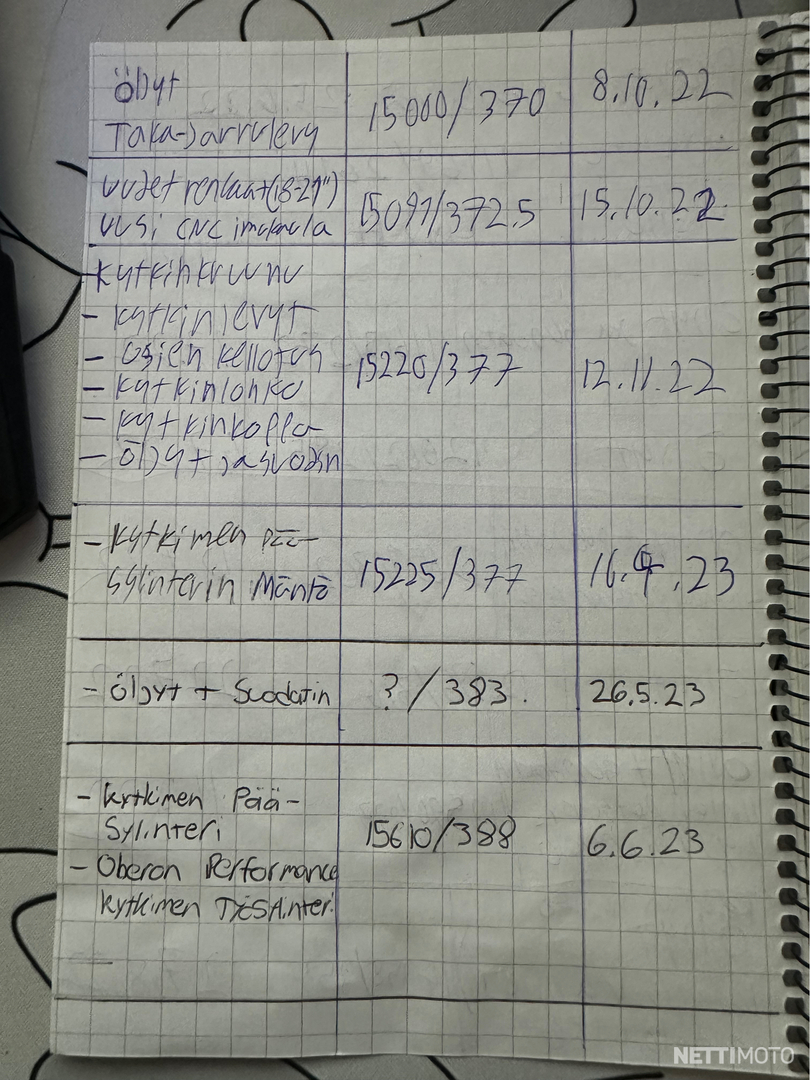 Öljyt
Taka-jarrulevy
15000/370
8.10.22
uudet renkaat(18-21")
uusi CNC imukaula
15091/372.5
15.10.22
-kytkinkruunu
- kytkinlevyt
- osien kellotus
- kytkinlohko
- kytkinkoppa
- Öljyt ja suodatin
15220/377
12.11.22
- kytkimen pää-
sylinterin Mäntä
15225/377
16.4.23
- Öljyt + Suodatin
? / 383.
26.5.23
- kytkimen Pää-
Sylinteri
- Oberon Performance
kytkimen
15610/388
6.6.23
NETTIMOTO